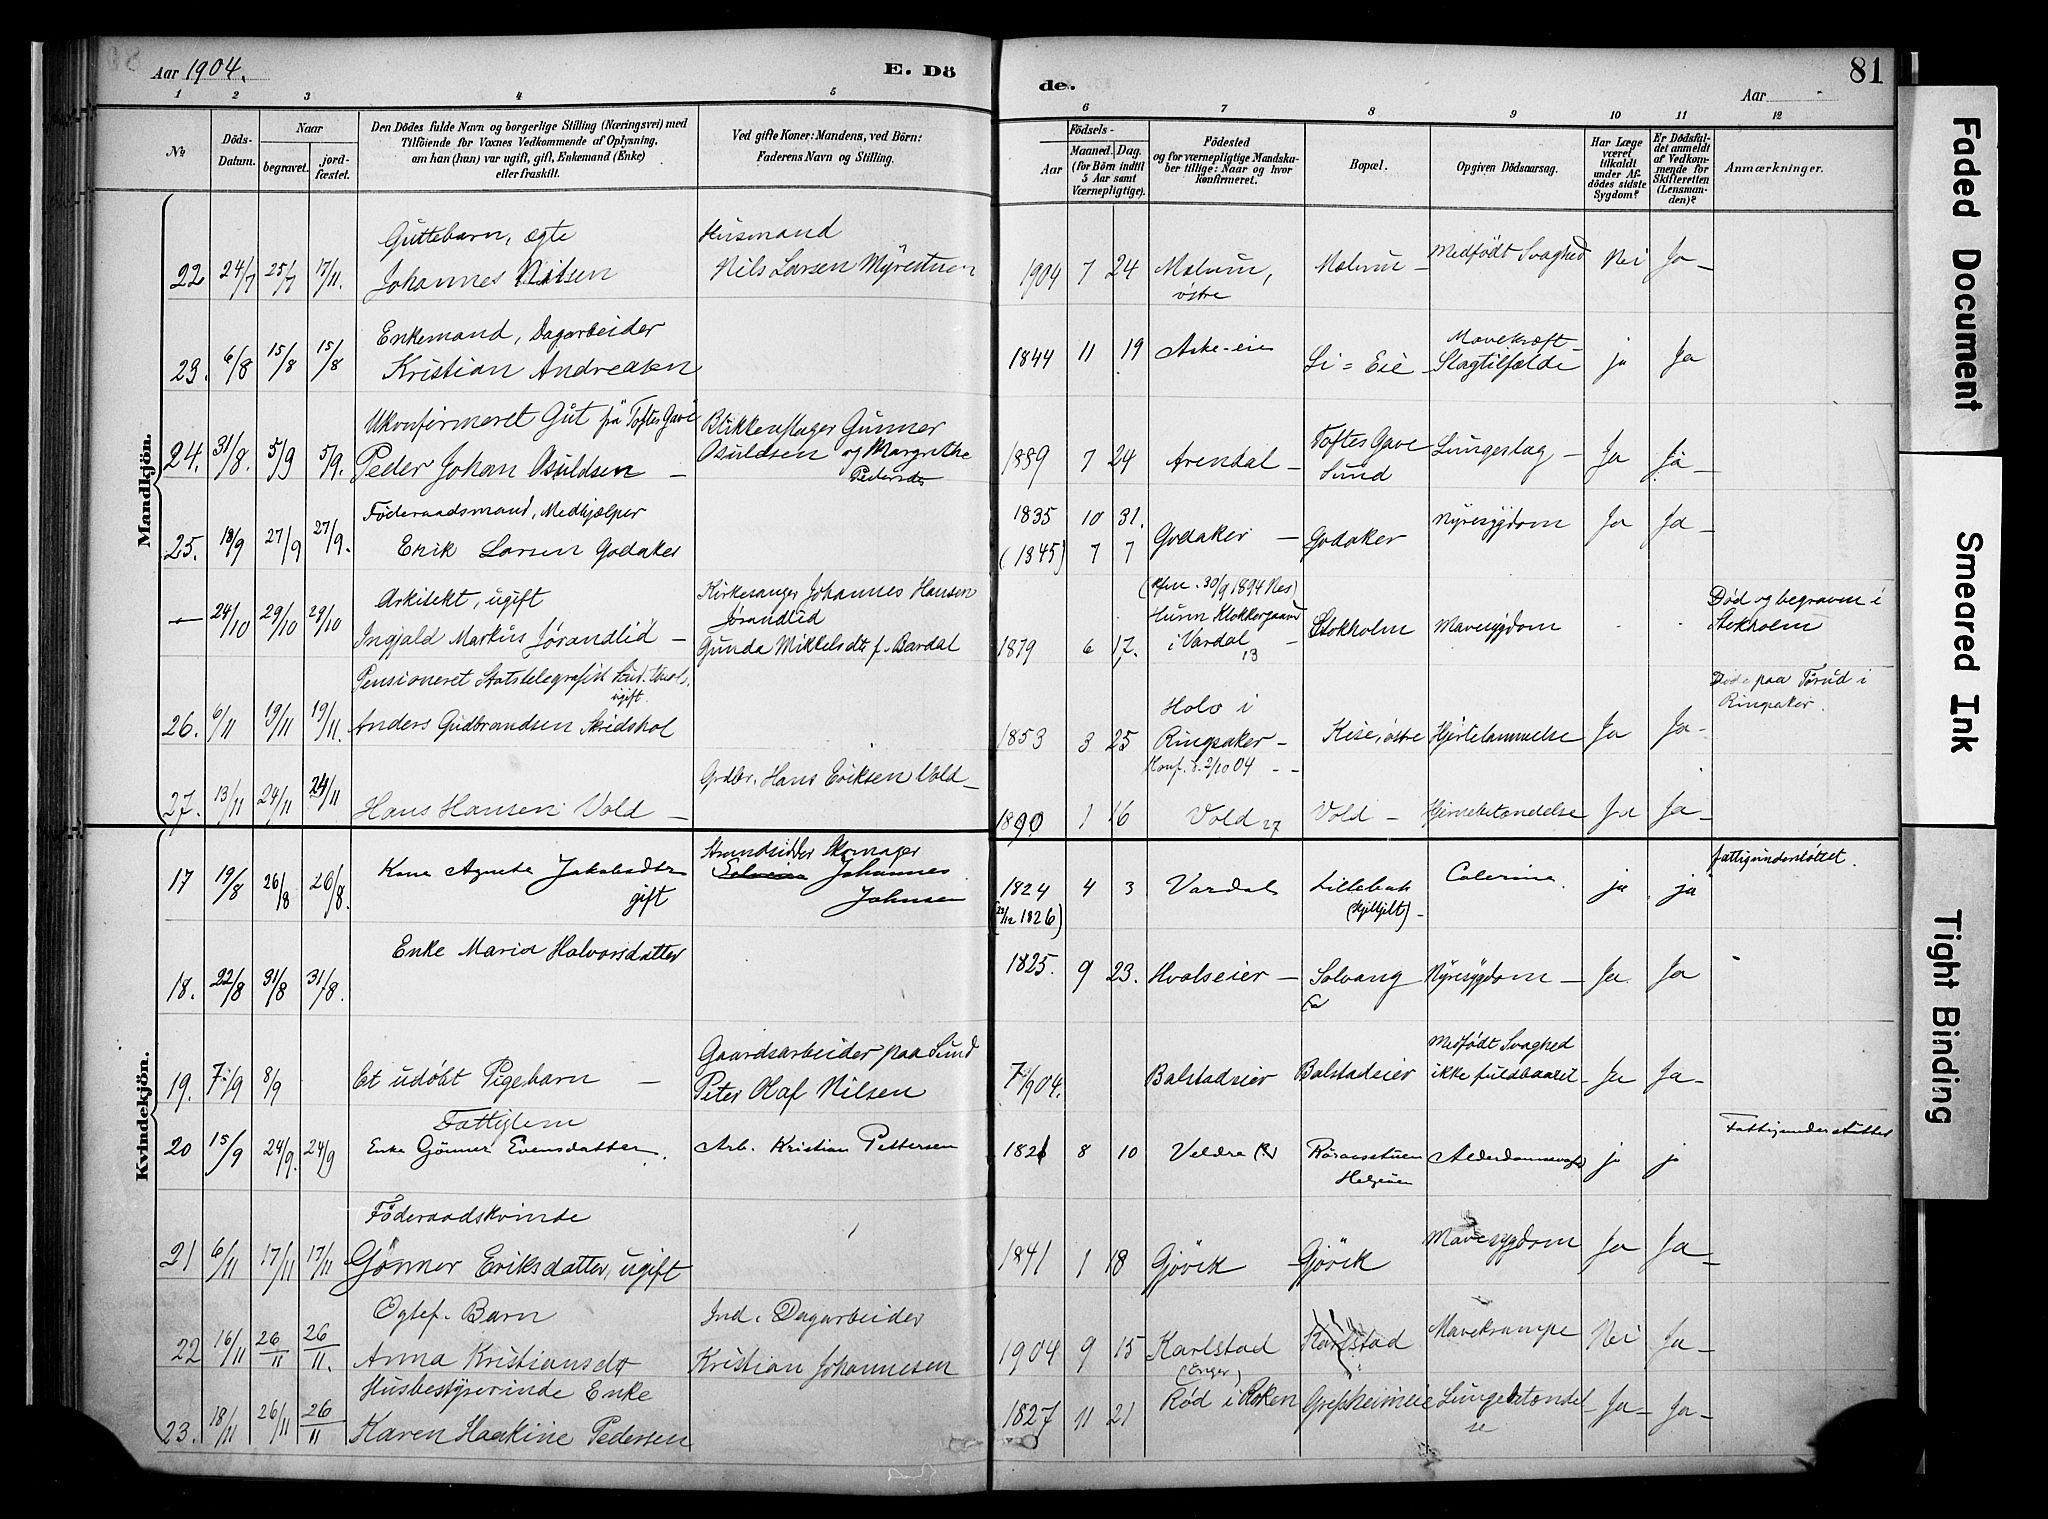 Aar 1904.
E. Dö
de.
Aar
81
1 2 3 4 5 6 7 8 9 10 11 12
No
Döds-Datum.
Naar
begravet.
jord-fæstet.
Den Dödes fulde Navn og borgerlige Stilling (Næringsvei) med
Tilföiende for Voxnes Vedkommende af Oplysning,
om han (hun) var ugift, gift, Enkemand (Enke)
eller fraskilt.
Ved gifte Koner: Mandens, ved Börn:
Faderens Navn og Stilling.
Födsels-
Aar
Maaned. Dag.
(for Börn indtil
5 Aar samt
Værnepligtige).
Födested
og for værnepligtige Mandska-
ber tillige: Naar og hvor
konfirmeret.
Bopæl.
Opgiven Dödsaarsag.
Har Læge
været
tilkaldt
under Af-
dödes sidste
Sygdom?
Er Dödsfal-
det anmeldt
af Vedkom-
mende for
Skifteretten
(Lensman-
den)?
Anmærkninger.
Mandkjön.
Guttebarn, ægte Husmand
22 24/7 25/7 17/11. Johannes Nilsen Nils Larsen Myrestuen 1904 7 24 Mælum, østre Mælum Medfödt Svaghed Nei Ja
Enkemand, Dagarbeider
23. 6/8 15/8 15/8 Kristian Andreasen 1844 11 19 Aske-eie Li=Eie Mavekræft- Slagtilfælde ja Ja
Ukonfirmeret Gut på Toftes Gave Blikkenslager Gunner
24. 31/8. 5/9 5/9. Peder Johan Osuldsen Osuldsen og Margrethe Pedersdr 1889 7 24 Arendal Toftes Gave Sund Lungeslag Ja Ja
Föderaadsmand, Medhjælper
25. 18/9 27/9 27/9. Erik Larsen Godaker 1835 10 31. (1845) 7 7 Godaker Godaker Nyresygdom Ja Ja
Arkitekt, ugift Kirkesanger Johannes Hansen Jørandlid
— 24/10 29/10 29/10 Ingjald Markus Jørandlid Gunda Mikkelsdtr f. Bardal 1879 6 17. (Kfm. 30/9 1894 Nes) Hunn Klokkergaard i Vardal 13 Stokholm Mavesygdom Död og begraven i Stokholm
Pensioneret Statstelegrafist ugift.
26. 6/11 19/11 19/11. Anders Gudbrandsen Skridshol 1853 3 25 Holo i Ringsaker Kise, östre Hjertelammelse Ja Ja Döde paa Tørud i Ringsaker.
Konf. d. 2/10 04
27. 13/11 24/11 24/11 Hans Hansen Vold Grdbr. Hans Eriksen Vold 1890 1 16 Vold 27 Vold Hjernebetændelse Ja Ja
Kvindekjön.
17 19/8 26/8 26/8. Kone Agnete Jakobsdtr gift Strandsidder Skomager Johannes Johnsen 1824 4 3 (22/12 1826) Vardal Lillebæk Colerine ja ja fattigunderstöttet.
18. 22/8 31/8 31/8. Enke Maria Halvorsdatter 1825. 9 23. Hvalseier Solvang Nyresygdom Ja Ja
19. 7/9 8/9 Et udöbt Pigebarn Gaardsarbeider paa Sund Peter Olaf Nilsen 7/9 04. Balstadeier Balstadeier Medfödt Svaghed ikke fuldbaaret Ja Ja
Fattiglem
20 15/9 24/9. 24/9 Enke Gönner Evensdatter. Arb. Kristian Pettersen 1821 8 10 Veldre (?) Helgøen Alderdomssvagh ja ja Fattigunderstøttet
Föderaadskvinde
21 6/11 17/11 17/11 Gönner Eriksdatter, ugift 1841 1 18 Gjövik Gjövik Mavesygdom Ja Ja
Ogtef. Barn Ind. Dagarbeider
22 16/11 26/11 26/11. Anna Kristiansdt Kristian Johannesen 1904 9 15 Karlstad (Enger) Karlstad Mavekrampe Nei Ja
Husbestyrerinde Enke
23. 18/11 26/11 26/11 Karen Haakine Pedersen 1827 11 21 Rød i Røken Gresheimeie Lungebetændelse Ja Ja
Faded Document
Smeared Ink
Tight Binding